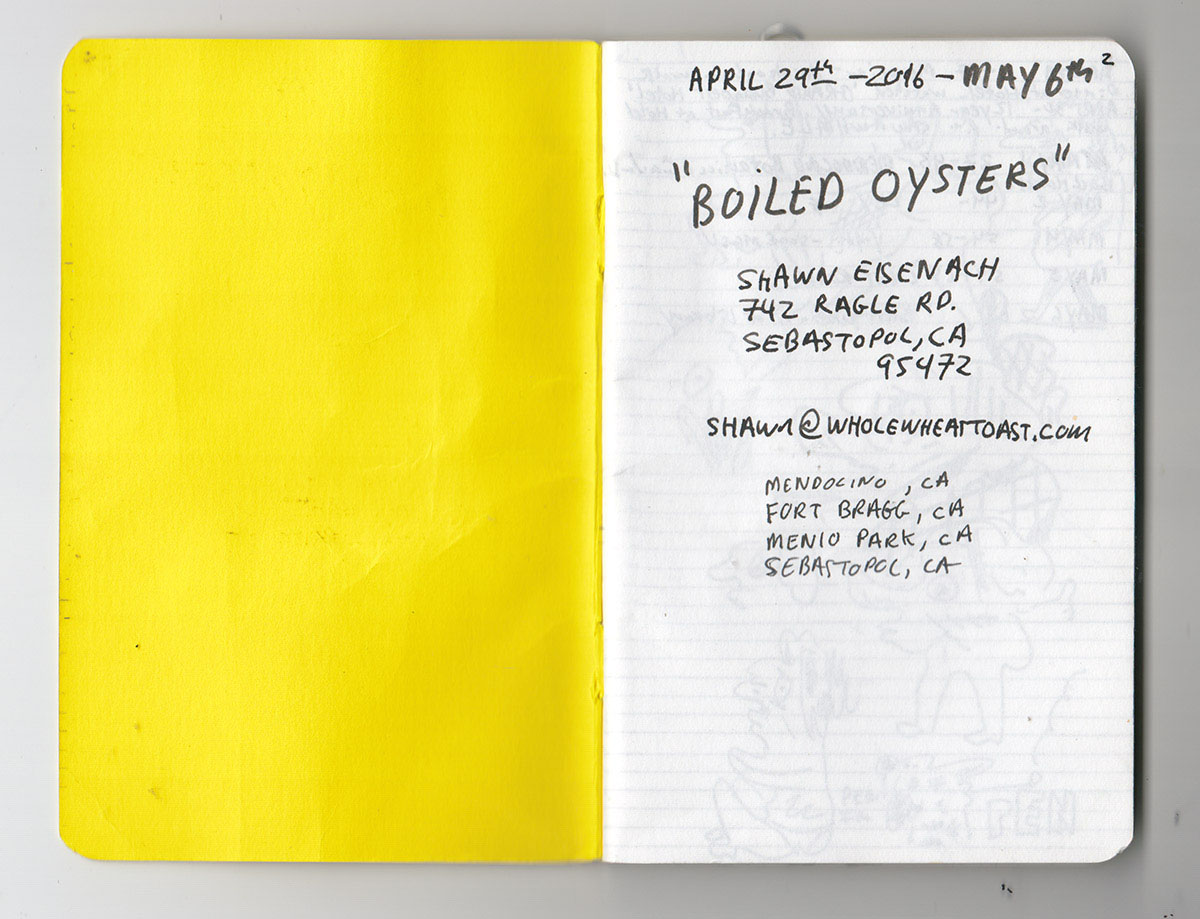 APRIL 29th - 2016 - MAY 6th 2
"BOILED OYSTERS"
SHAWN EISENACH
742 RAGLE RD.
SEBASTOPOL, CA
95472
SHAWN@WHOLEWHEATTOAST.COM
MENDOCINO, CA
FORT BRAGG, CA
MENLO PARK, CA
SEBASTOPOL, CA